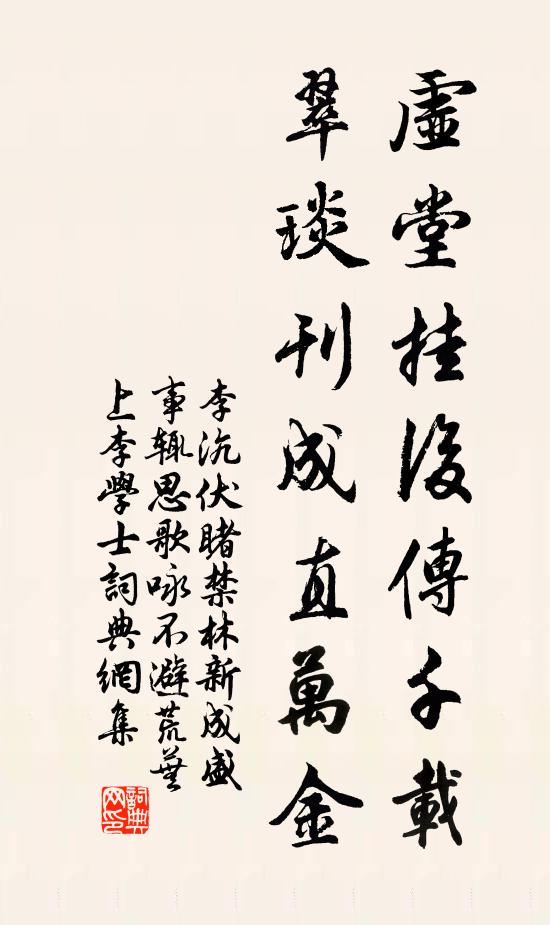 虛堂挂後傳千載
翠琰刊成直萬金
李沆伏睹禁林新成盛
事輒思歌咏不避荒蕪
上李學士詞典網集
詞典
网印